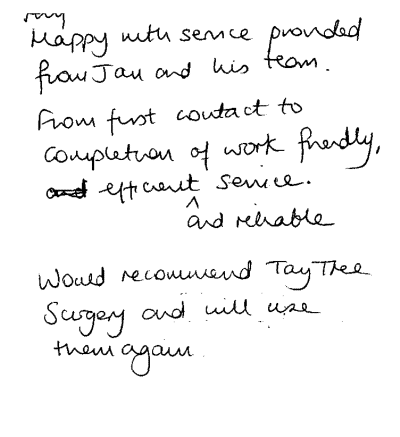 very
Happy with service provided
from Jan and his team.
From first contact to
completion of work friendly,
and efficient service.
^
and reliable
Would recommend Tay Tree
Surgery and will use
them again